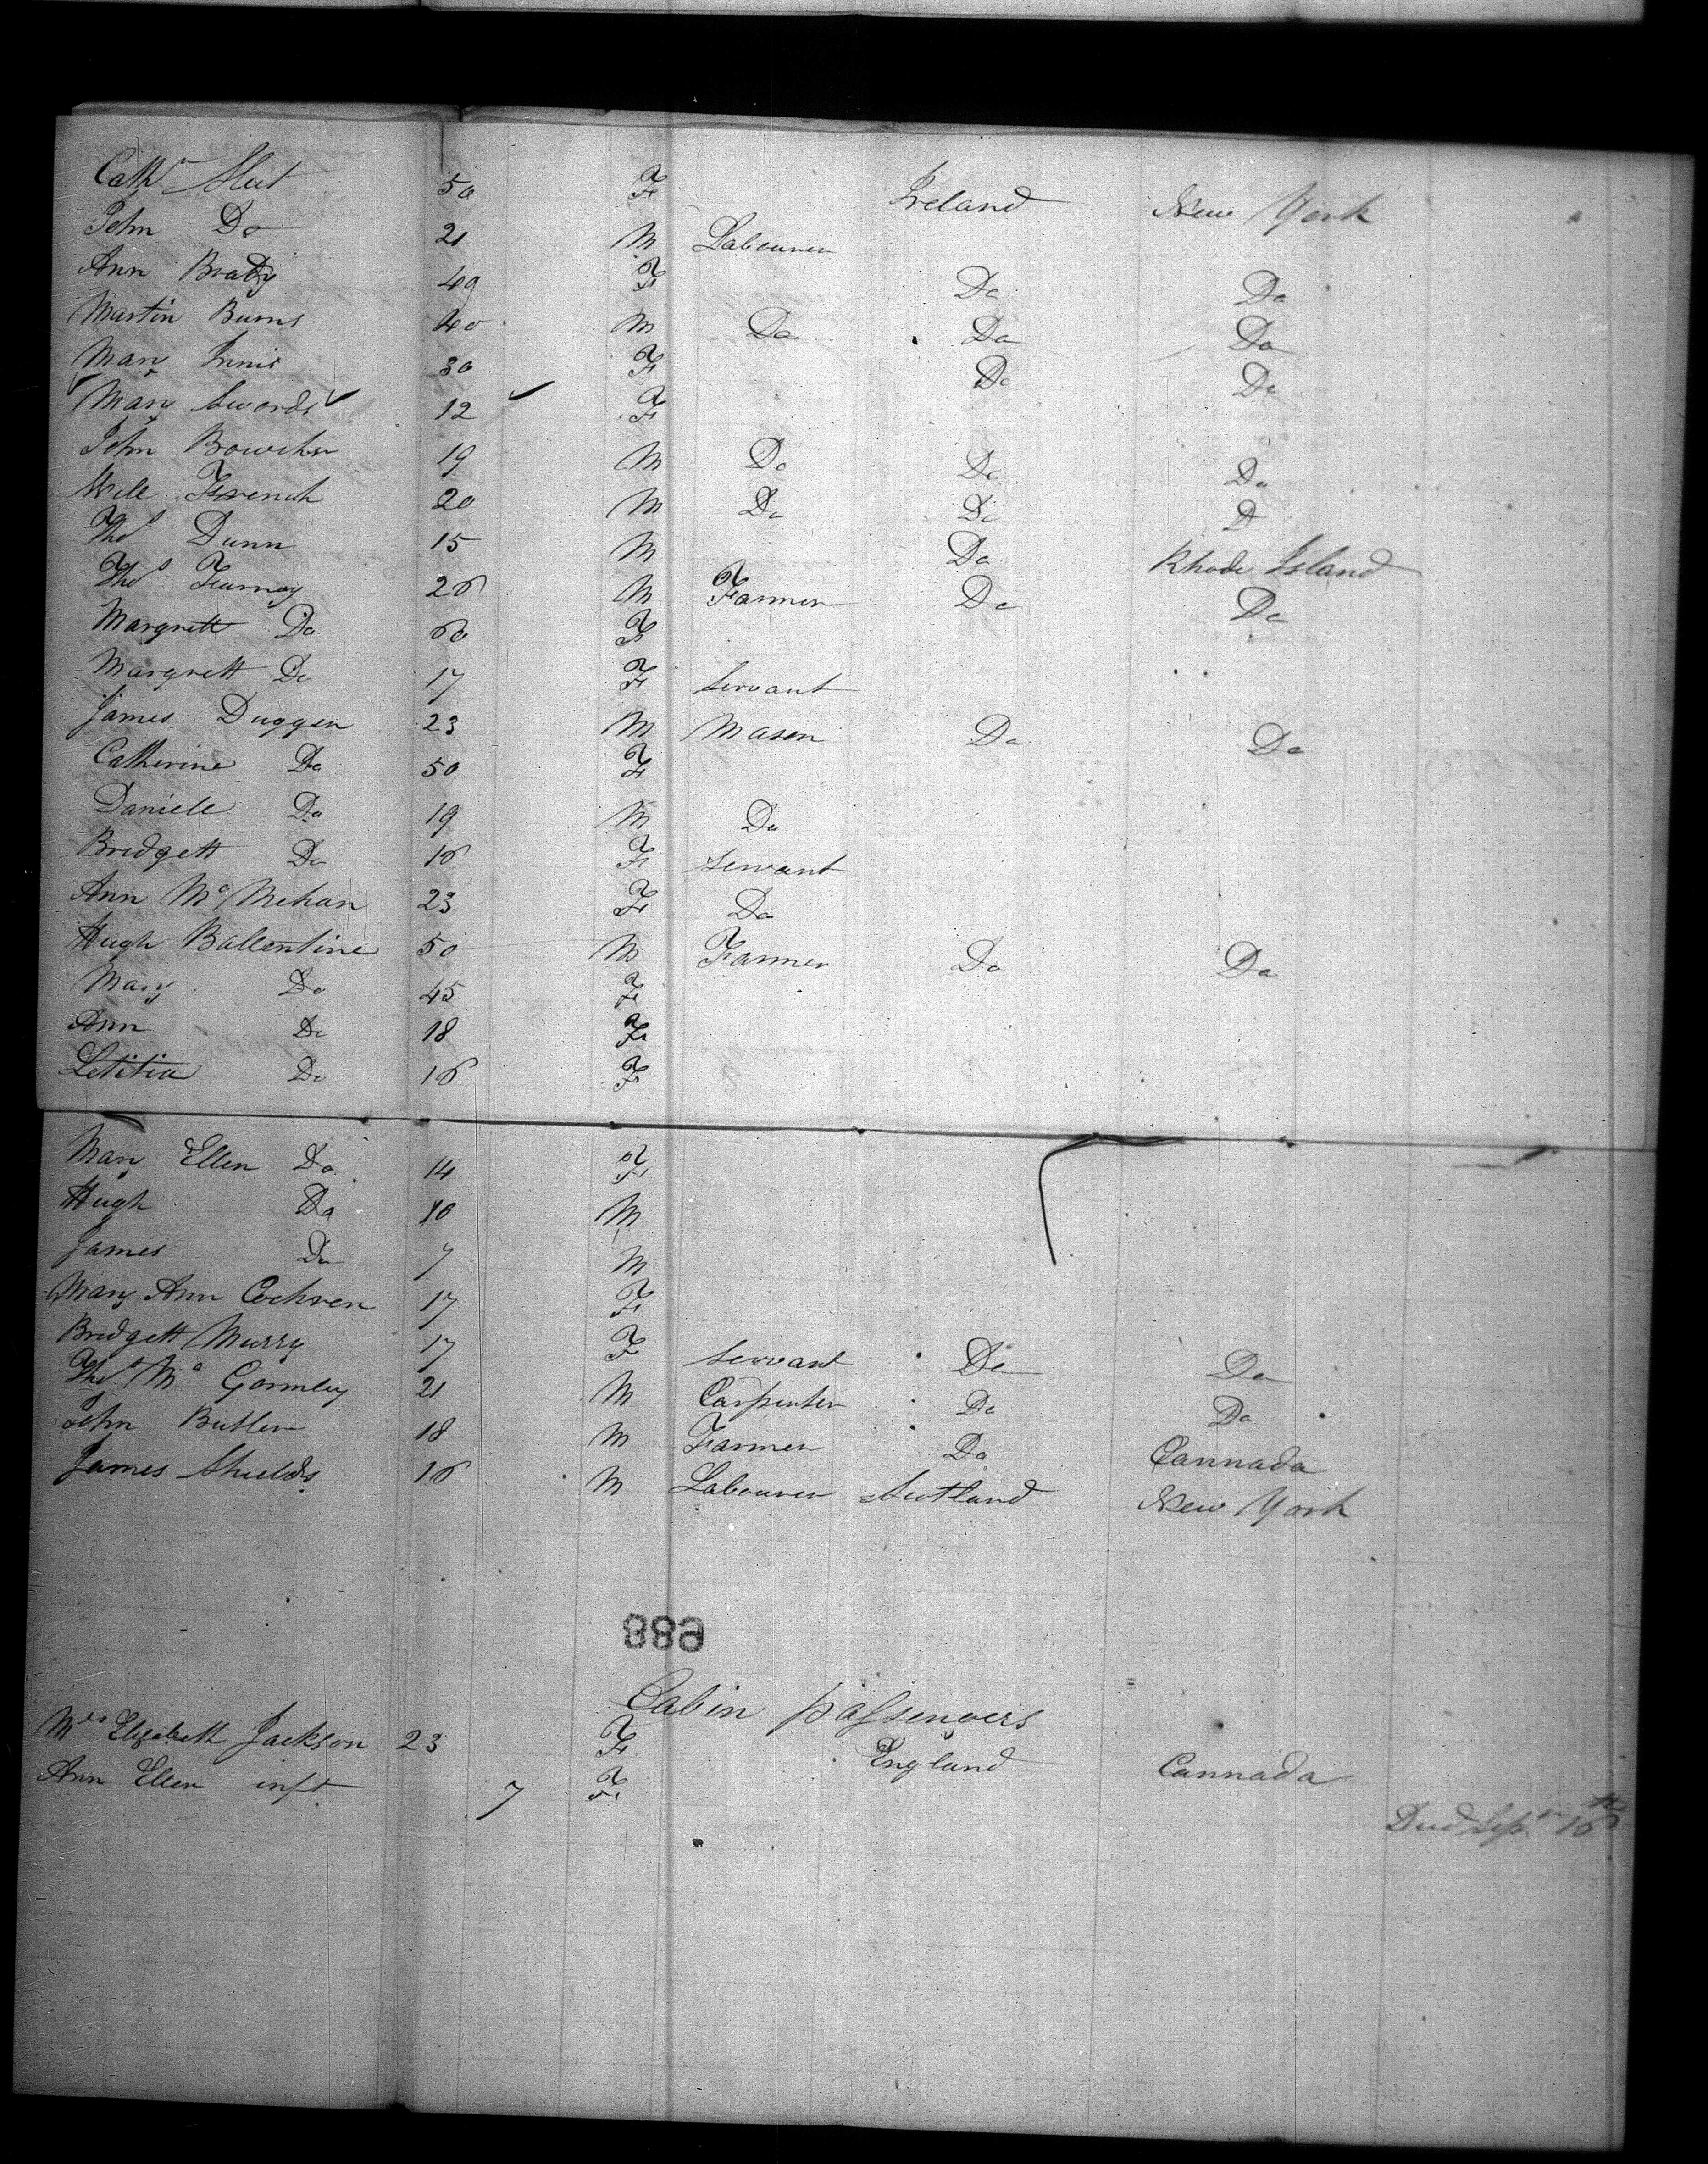 Cathn 50 F Ireland New York
John Do 21 M Labourer
Ann Brady 49 F Do Do
Martin Burns 40 M Do Do Do
Mary Innis 30 F Do Do
Mary Swords 12 F
John Bowcher 19 M Do Do Do
Will French 20 M Do Do D
Thos Dunn 15 M Do Rhode Island
Thos 26 M Farmer Do Do
Margrett Do 60 F
Margrett Do 17 F Servant
James Duggen 23 M Mason Do Do
Catherine Do 50 F
Daniell Do 19 M Do
Bridgett Do 16 F Servant
Ann Mc Mehan 23 F Do
Hugh Ballentine 50 M Farmer Do Do
Mary Do 45 F
Ann Do 18 F
Letitia Do 16 F
Mary Ellen Do 14 F
Hugh Do 10 M
James Do 7 M
Mary Ann Cochren 17 F
Bridgett Murry 17 F Servant Do Do
Thos Mc Gormley 21 M Carpenter Do Do
John Butler 18 M Farmer Do Cannada
James Shields 16 M Labourer Scotland New York
889
Cabin passengers
Mrs Elizabeth Jackson 23 F England Cannada
Ann Ellen inft 7 F Died Sepr 16th